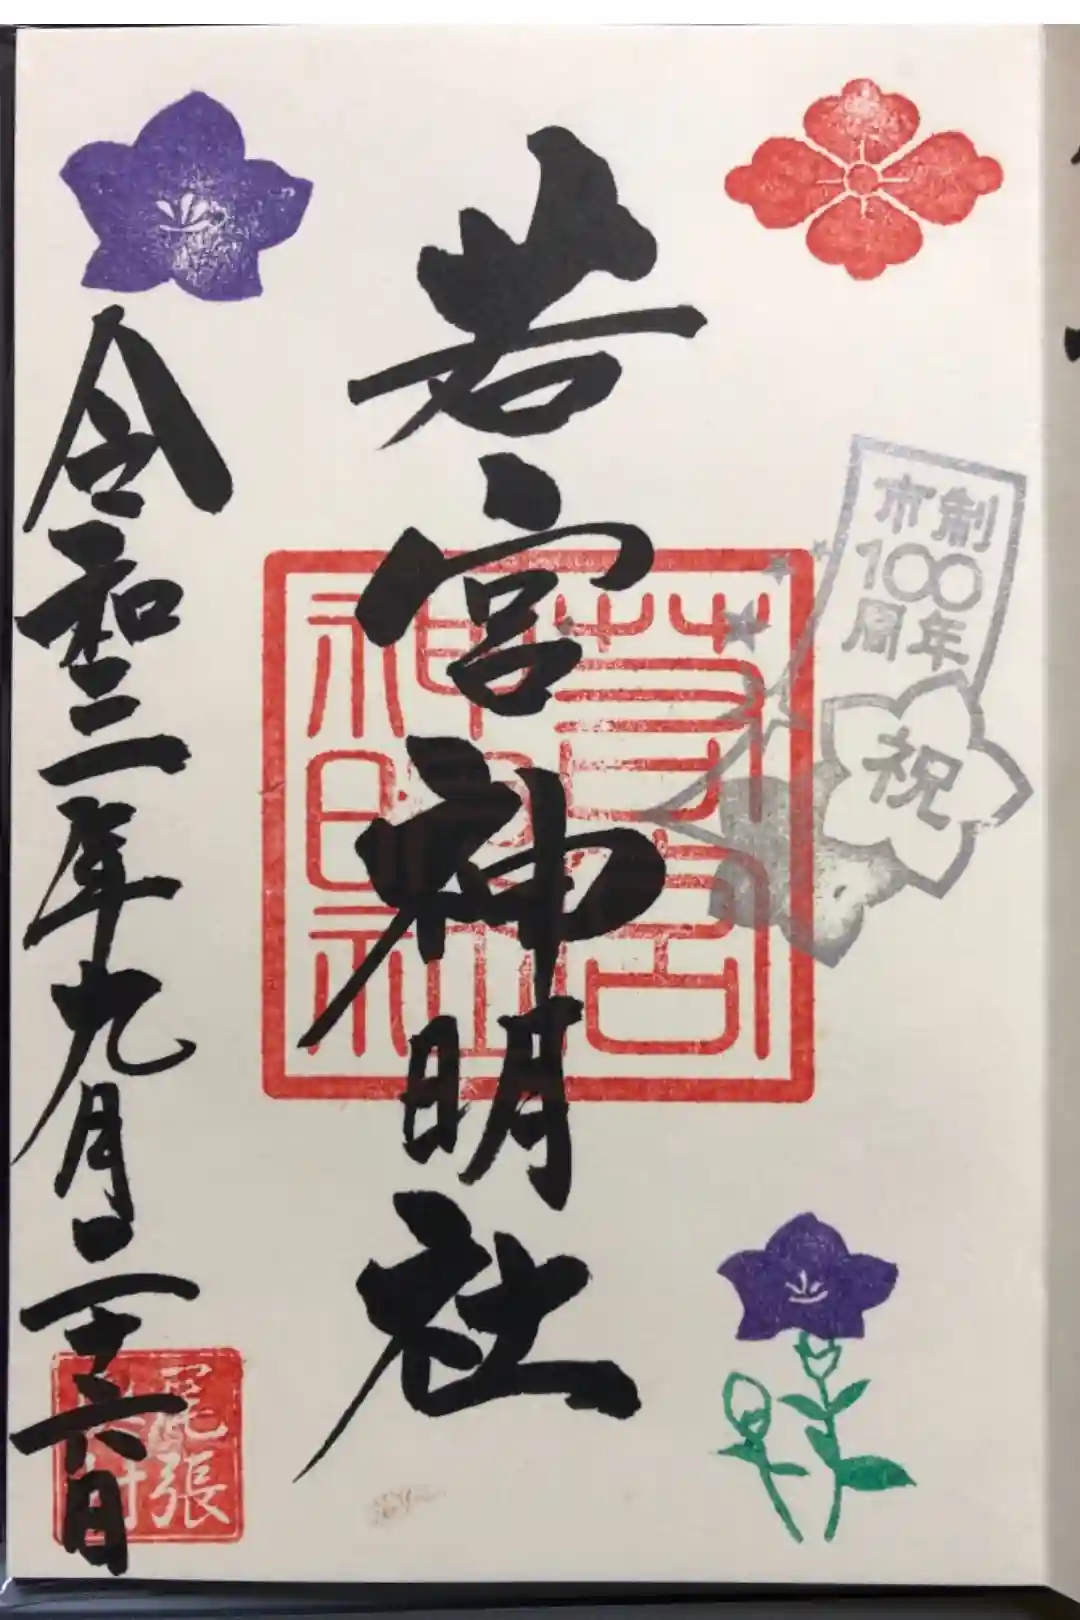 市制
100
周年
祝
若宮神明社
若宮
神明社
令和三年九月二十六日
尾張